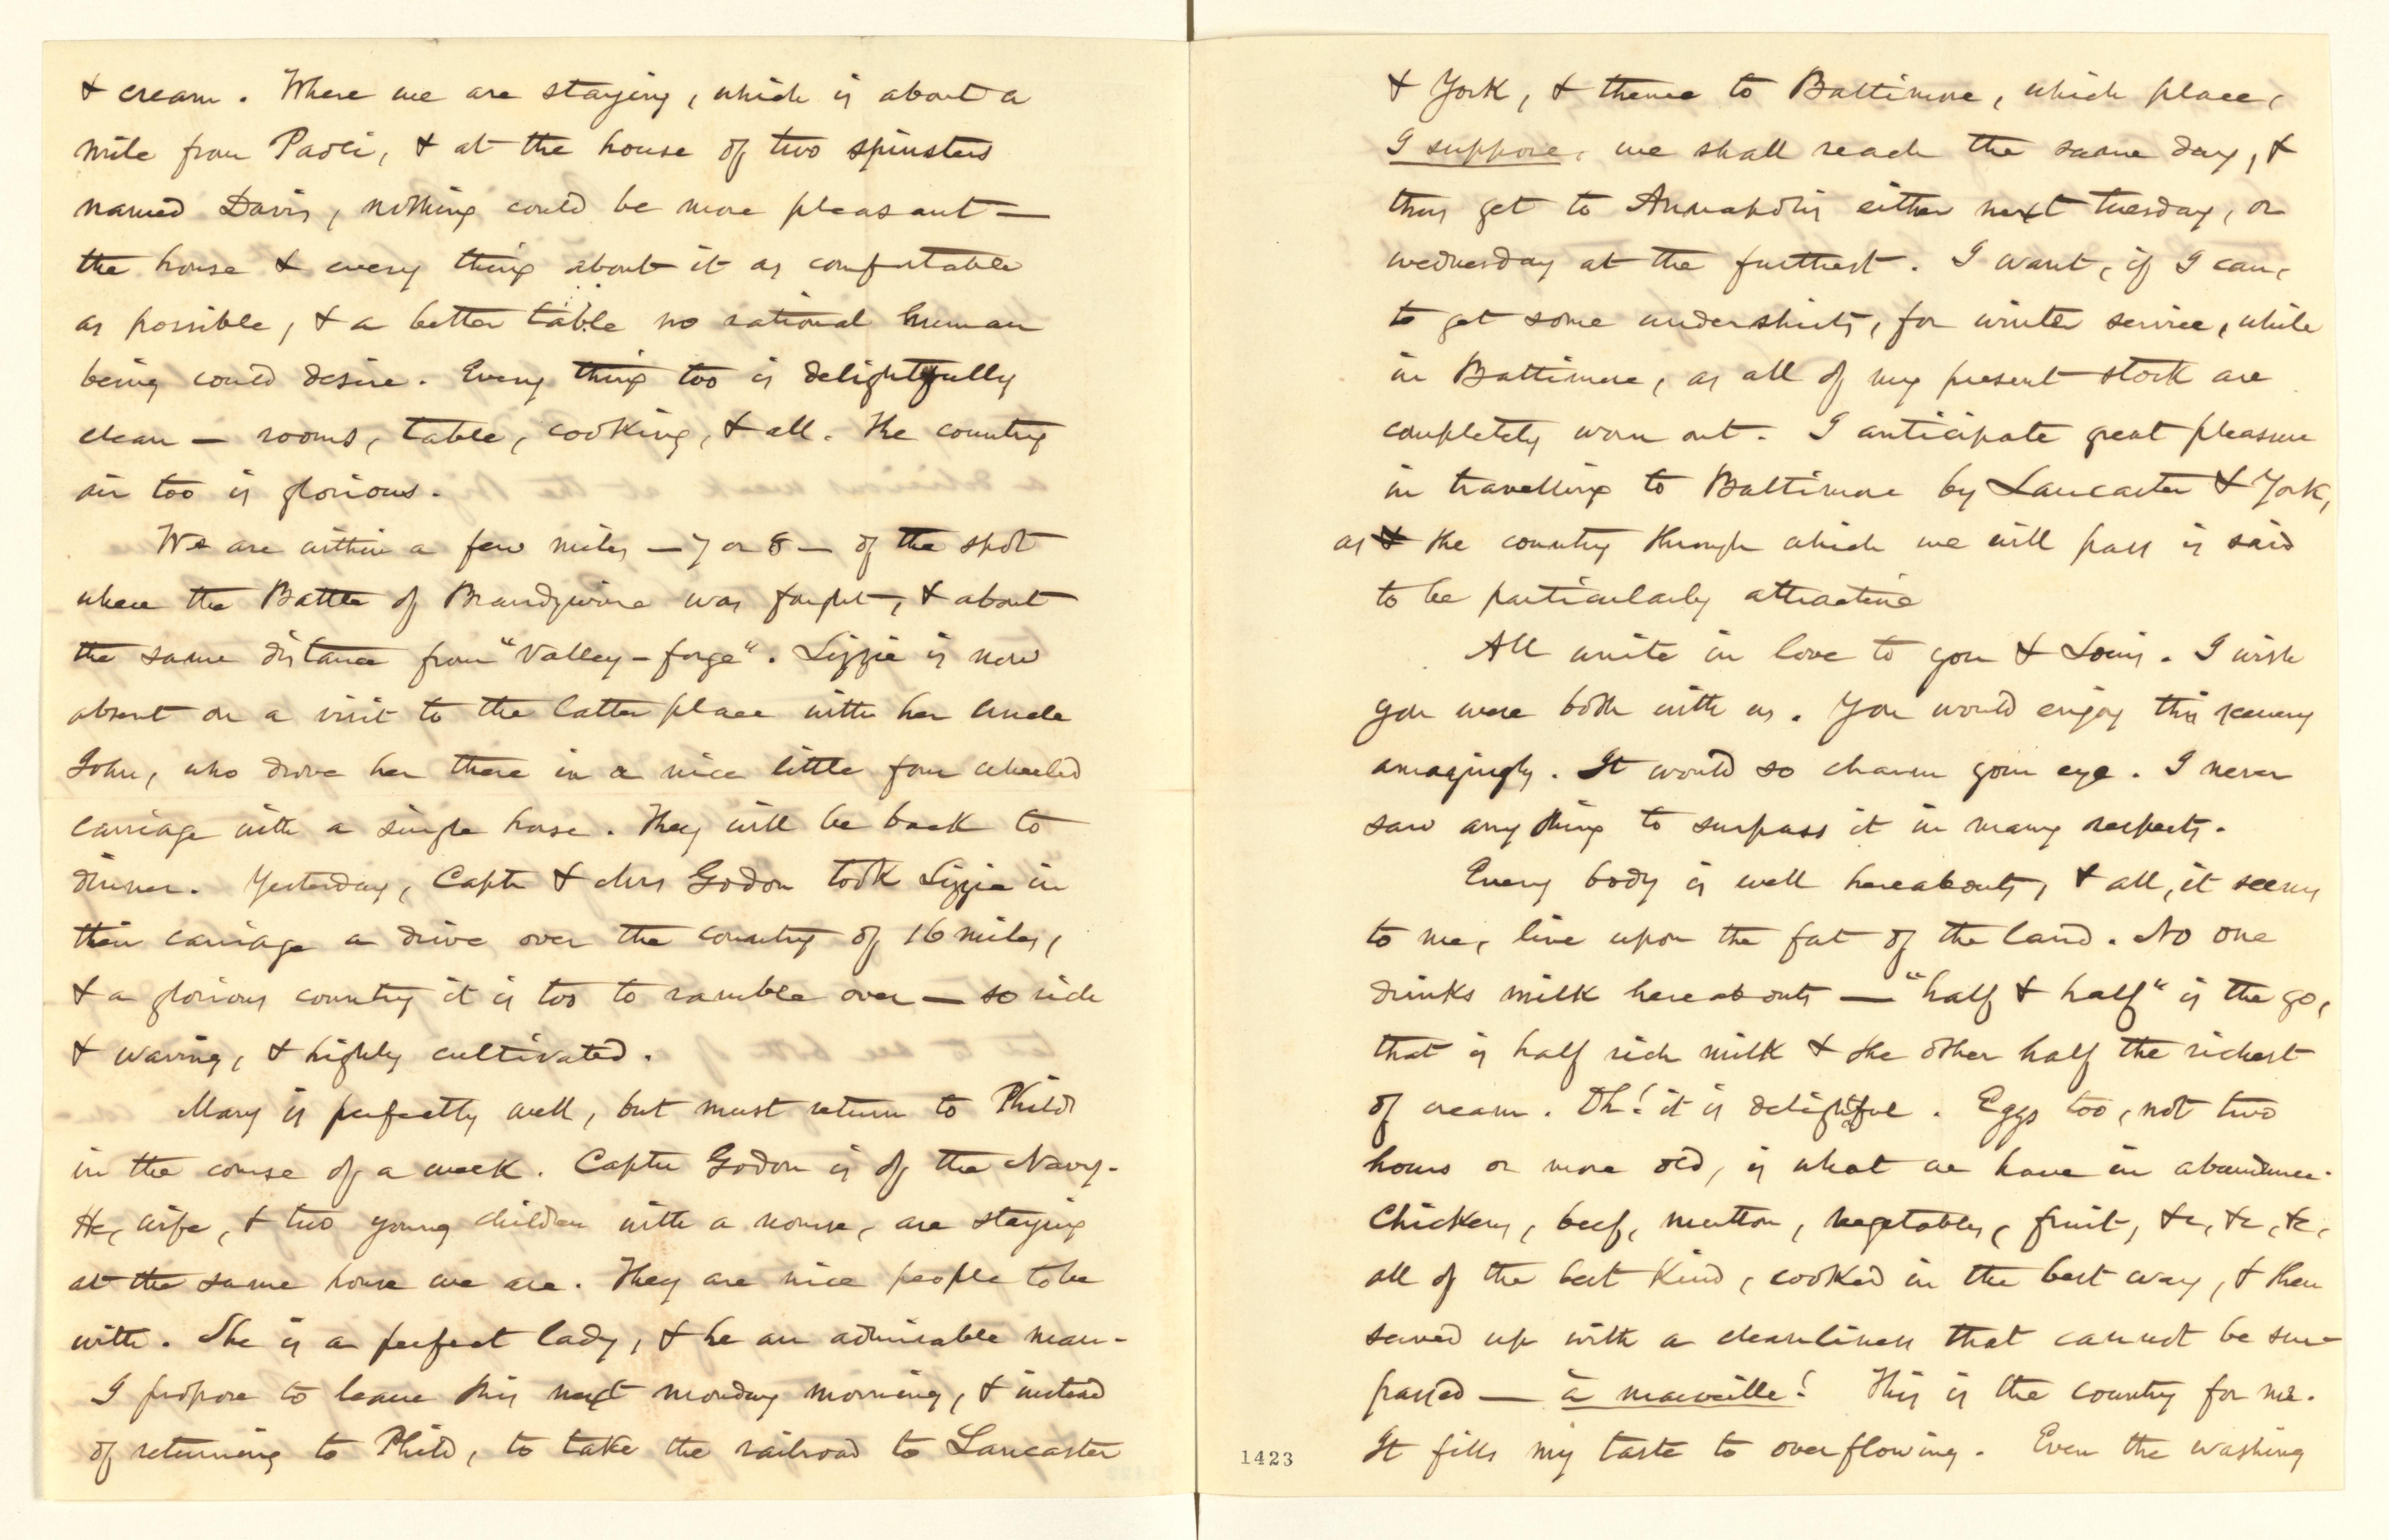 & cream. Where we are staying, which is about a
mile from Paoli, & at the house of two spinsters
named Davis, nothing could be more pleasant —
the house & every thing about it as comfortable
as possible, & a better table no rational human
being could desire. Every thing too is delightfully
clean — rooms, table, cooking, & all. The country
air too is glorious.
We are within a few miles — 7 or 8 — of the spot
where the Battle of Brandywine was fought, & about
the same distance from "Valley-forge". Lizzie is now
absent on a visit to the latter place with her Uncle
John, who drove her there in a nice little four wheeled
carriage with a single horse. They will be back to
dinner. Yesterday, Captn & Mrs Godon took Lizzie in
their carriage a drive over the country of 16 miles,
& a glorious country it is too to ramble over — so rich
& waving, & highly cultivated.
Mary is perfectly well, but must return to Phild
in the course of a week. Captn Godon is of the Navy.
He, wife, & two young children with a nourse, are staying
at the same house we are. They are nice people to be
with. She is a perfect lady, & he an admirable man.
I propose to leave this next monday morning, & instead
of returning to Phild, to take the railroad to Lancaster
& York, & thence to Baltimore, which place,
I suppose, we shall reach the same day, &
thus get to Annapolis either next tuesday, or
wednesday at the furthest. I want, if I can,
to get some undershirts, for winter service, while
in Baltimore, as all of my present stock are
completely worn out. I anticipate great pleasure
in travelling to Baltimore by Lancaster & York,
as the country through which we will pass is said
to be particularly attractive
All unite in love to you & Louis. I wish
you were both with us. You would enjoy this scenery
amazingly. It would so charm your eye. I never
saw any thing to surpass it in many respects.
Every body is well hereabouts, & all, it seems
to me, live upon the fat of the land. No one
drinks milk hereabouts — "half & half" is the go,
that is half rich milk & the other half the richest
of cream. Oh! it is delightful. Eggs too, not two
hours or more old, is what we have in abundance.
Chickens, beef, mutton, vegetables, fruit, &c, &c, &c,
all of the best kind, cooked in the best way, & then
served up with a cleanliness that cannot be sur-
passed — à merveille! This is the country for me.
1423
It fills my taste to overflowing. Even the washing